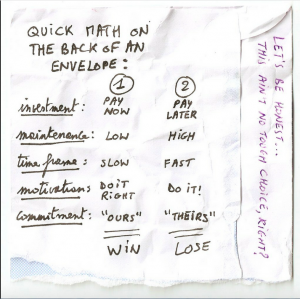 QUICK MATH ON
THE BACK OF AN
ENVELOPE:
1 2
investment: PAY NOW PAY LATER
maintenance: LOW HIGH
time frame: SLOW FAST
motivation: DO IT RIGHT DO IT!
commitment: "OURS" "THEIRS"
WIN LOSE
LET'S BE HONEST...
THIS AIN'T NO TOUGH CHOICE, RIGHT?